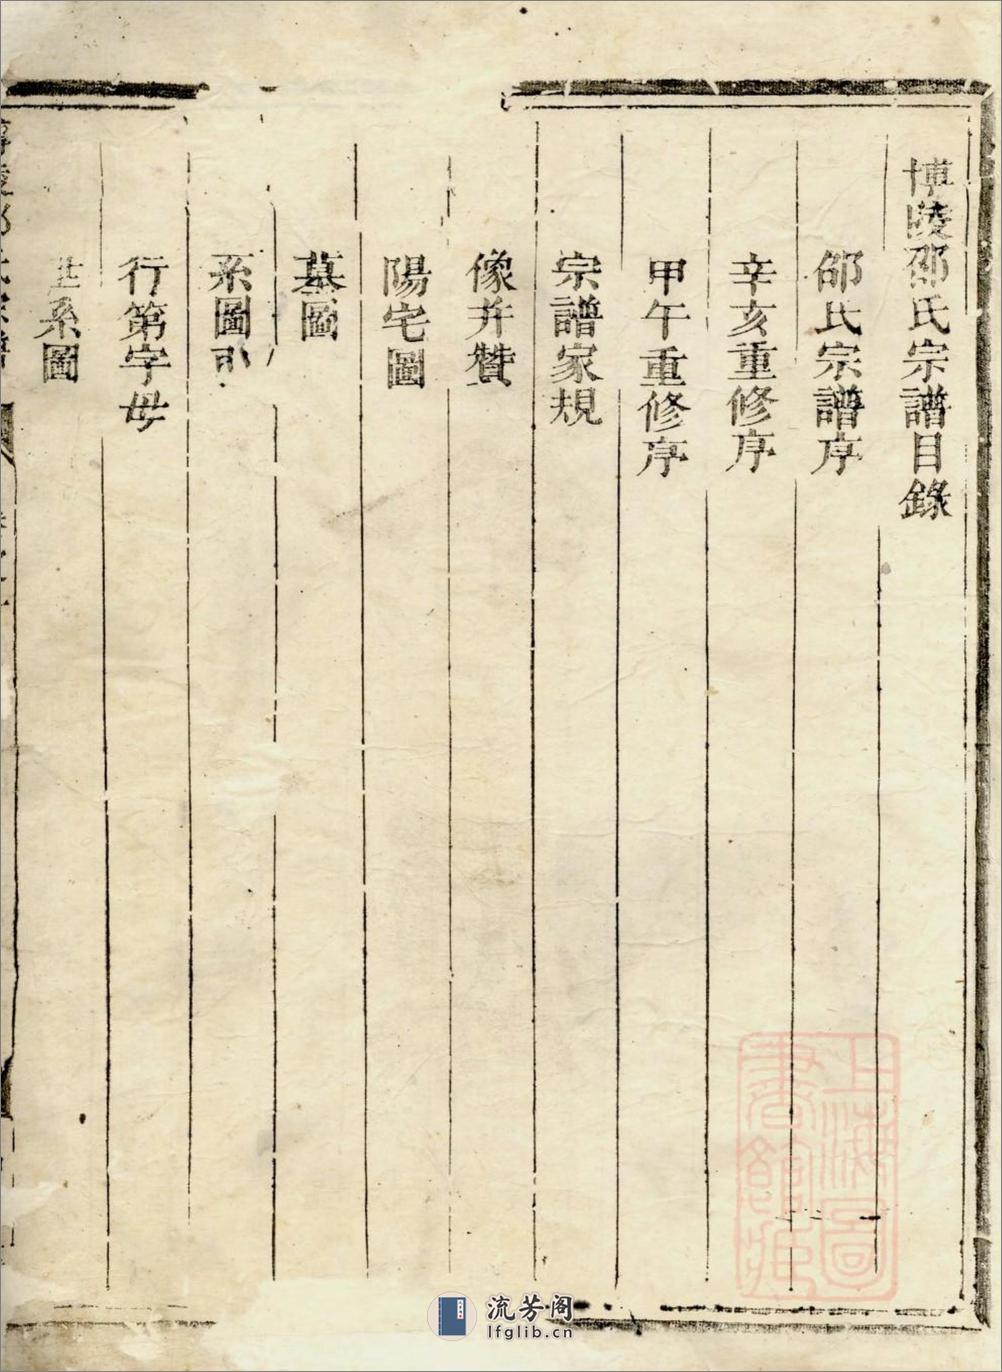 博陵邵氏宗譜目錄
邵氏宗譜序
辛亥重修序
甲午重修序
宗譜家規
像并贊
陽宅圖
墓圖
系圖引
行第字母
世系圖
上海圖書館藏
流芳阁
lfglib.cn